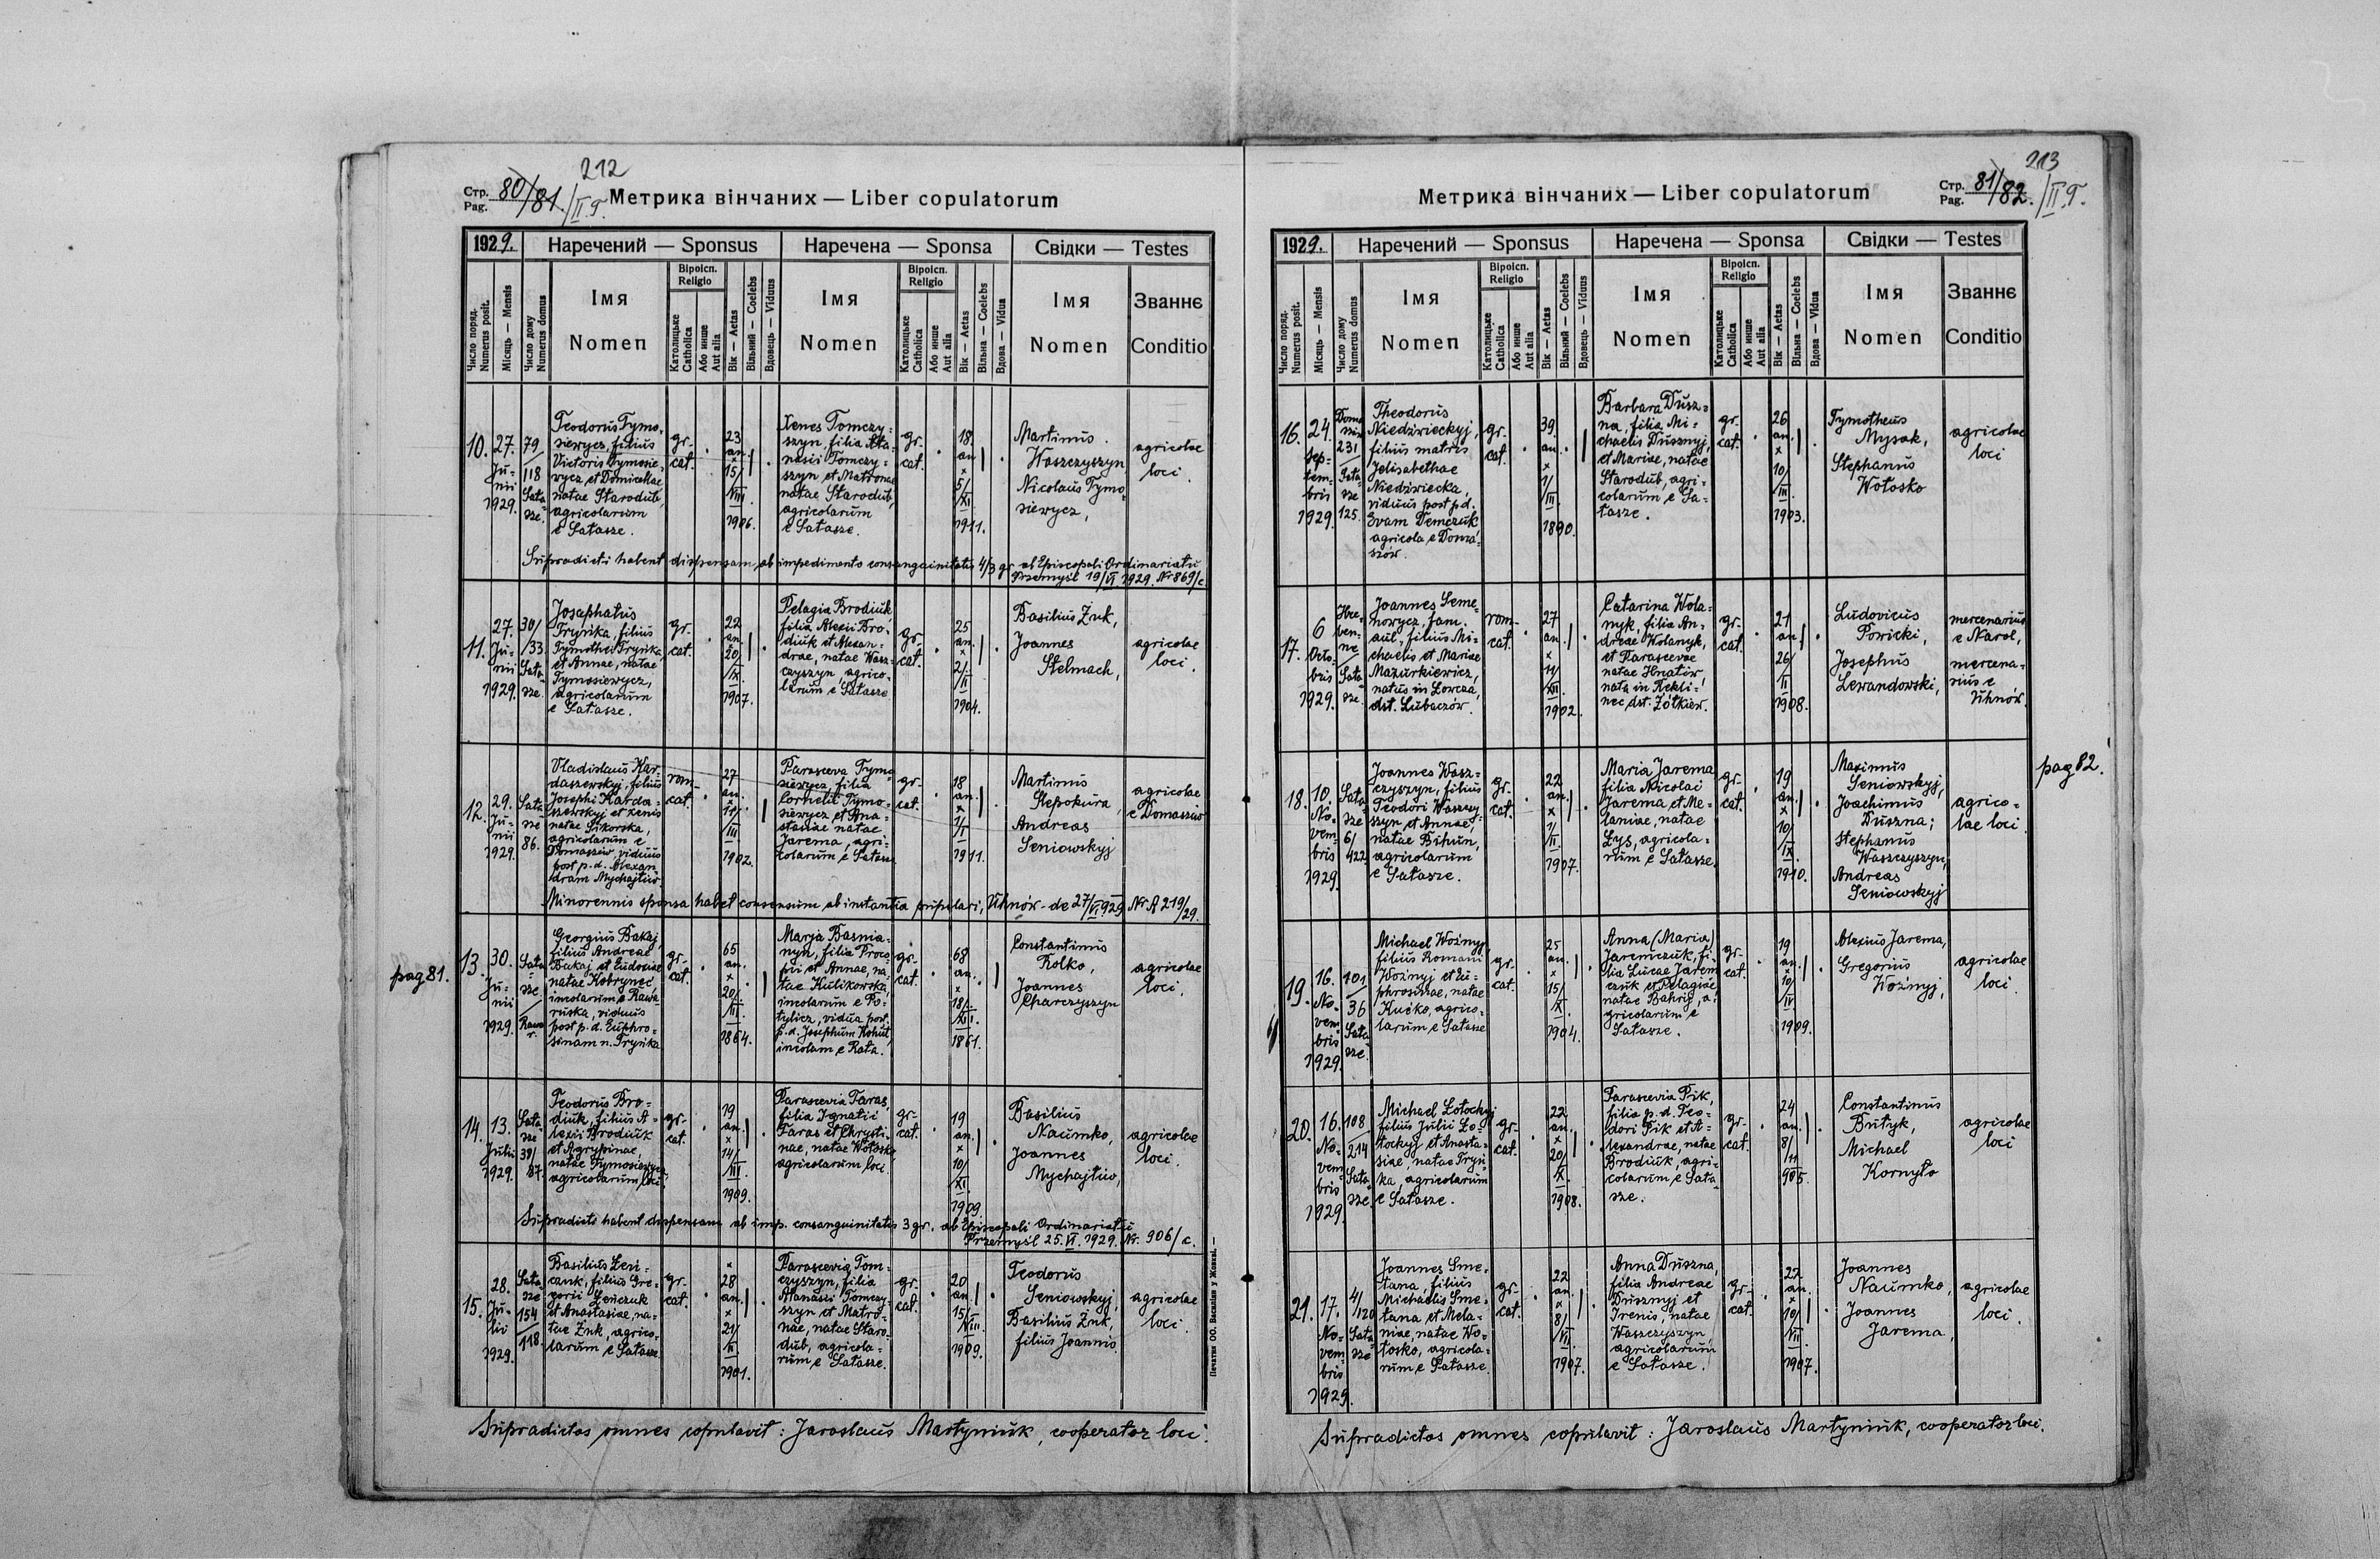 212
Стр. 80/81./II.T.
Pag.
Метрика вінчаних — Liber copulatorum
1929.
Наречений — Sponsus
Наречена — Sponsa
Свідки — Testes
Число поряд.
Numerus posit.
Місяць — Mensis
Число дому
Numerus domus
Імя
Nomen
Віроісп.
Religio
Католицьке
Catholica
Або инше
Aut alia
Вік — Aetas
Вільний — Coelebs
Вдовець — Viduus
Імя
Nomen
Віроісп.
Religio
Католицьке
Catholica
Або инше
Aut alia
Вік — Aetas
Вільна — Coelebs
Вдова — Vidua
Імя
Nomen
Званнє
Conditio
10.
27.
Ju-
nii
1929.
79/
118
Sała-
sze.
Teodorus Tymo-
siewycz, filius
Victoris Tymosie-
wycz et Domicellae
natae Starodub,
agricolarum
e Sałasze.
gr.
cat.
23
an.
×
15/
VIII
1906.
Xenes Tomczy-
szyn, filia Ata-
nasii Tomczy-
szyn et Matronae
natae Starodub,
agricolarum
e Sałasze.
gr.
cat.
18.
an
×
5/
XI
1911.
Martinus
Waszczyszyn
Nicolaus Tymo-
siewycz,
agricolae
loci.
Supradicti habent dispensam ab impedimento consanguinitatis 4/3 gr. ab Episcopali Ordinariatu
Przemyśl 19/VI 1929. Nr 869/c.
11.
27.
Ju-
nii
1929.
30/
/33
Sała-
sze.
Josaphatus
Tryńka, filius
Tymothei Tryńka,
et Annae, natae
Tymosiewycz,
agricolarum
e Sałasze.
gr.
cat.
22
an.
×
20/
IX
1907.
Pelagia Brodiuk,
filia Alexii Bro-
diuk et Alexan-
drae, natae Wasz-
czyszyn, agrico-
larum e Sałasze
gr.
cat.
25
an.
×
2/
II
1904.
Basilius Żuk,
Joannes
Stelmach,
agricolae
loci.
12.
29.
Ju-
nii
1929.
Sała-
sze
86.
Vladislaus Kar-
daszewskyj, filius
Josephi Karda-
szewskyj et Xenis
natae Sikorska,
agricolarum e
Domaszów, viduus
post p. d. Alexan-
dram Mychajłiw.
rom-
cat.
27
an.
×
11/
III
1902.
Parasceva Tymo-
siewycz, filia
Cornelii Tymo-
siewycz et Ana-
stasiae natae
Jarema, agri-
colarum e Sałasze
gr.
cat.
18
an.
×
1/
I
1911.
Martinus
Stepokura,
Andreas
Seniowskyj
agricolae
e Domaszów
Minorennis sponsa habet consensum ab instantia pupilari, Uhnów - de 27/VI 929 Nr A 219/29.
pag 81.
13.
30.
Ju-
nii
1929.
Sała-
sze
Rawa
r.
Georgius Bakaj,
filius Andreae
Bakaj et Eudociae
natae Kobrynec,
incolarum e Rawa
ruska, viduus
post p. d. Euphro-
sinam n. Tryńka
gr-
cat.
65
an.
×
20/
III.
1864.
Marja Basnia-
nyn, filia Proco-
pii et Annae, na-
tae Kulikowska,
incolarum e Po-
tylicz, vidua post.
p. d. Josephum Kohut,
incolam e Rata.
gr-
cat.
68
an.
×
18/
XII.
1861.
Constantinus
Rolko,
Joannes
Charczyszyn
agricolae
loci.
14.
13.
Julii
1929.
Sała-
sze
39/
87.
Teodorus Bro-
diuk, filius A-
lexii Brodiuk
et Agrypinae,
natae Tymosiewycz,
agricolarum loci.
gr-
cat.
19
an.
×
14/
III.
1909.
Parascevia Taras,
filia Ignatii
Taras et Chrysti-
nae, natae Wołosko,
agricolarum loci.
gr.
cat.
19
an.
×
10/
XI.
1909.
Basilius
Naumko,
Joannes
Mychajłiw,
agricolae
loci.
Supradicti habent dispensam ab imp. consanguinitatis 3 gr. ab Episcopali Ordinariatu
Przemyśl 25. VI. 1929. Nr. 906/c.
15.
28.
Ju-
lii
1929.
Sała-
sze
154
118.
Basilius Łeń-
czuk, filius Gre-
gorii Łeńczuk
et Anastasiae, na-
tae Żuk, agrico-
larum e Sałasze.
gr-
cat.
28
an.
×
21/
II.
1901.
Parascevia Tom-
czyszyn, filia
Atanasii Tomczy-
szyn et Matro-
nae, natae Staro-
dub, agricola-
rum e Sałasze.
gr.
cat.
20
an.
15/
VIII
1909.
Teodorus
Seniowskyj,
Basilius Żuk,
filius Joannis
agricolae
loci.
Печатня ОО. Василіян у Жовкві. —
Supradictos omnes copulavit: Jaroslaus Martyniuk, cooperator loci.
213
Метрика вінчаних — Liber copulatorum
Стр. 81/82./II.T.
Pag.
1929.
Наречений — Sponsus
Наречена — Sponsa
Свідки — Testes
Число поряд.
Numerus posit.
Місяць — Mensis
Число дому
Numerus domus
Імя
Nomen
Віроісп.
Religio
Католицьке
Catholica
Або инше
Aut alia
Вік — Aetas
Вільний — Coelebs
Вдовець — Viduus
Імя
Nomen
Віроісп.
Religio
Католицьке
Catholica
Або инше
Aut alia
Вік — Aetas
Вільна — Coelebs
Вдова — Vidua
Імя
Nomen
Званнє
Conditio
16.
24.
Sep-
tem-
bris
1929.
231
Sała-
sze
125.
Theodorus
Niedźwieckyj,
filius matris
Jelisabethae
Niedźwiecka,
viduus post p. d.
Evam Demczuk
agricola e Doma-
szów.
gr.
cat.
39
an.
×
1/
III.
1890.
Barbara Dusz-
na, filia Mi-
chaelis Dusznyj,
et Mariae, natae
Starodub, agri-
colarum e Sa-
łasze.
gr.
cat.
26
an.
×
10/
III.
1903.
Tymotheus
Mysak,
Stephanus
Wołosko
agricolae
loci.
17.
6
Octo-
bris
1929.
Hre-
ben-
ne
Sała-
sze.
Joannes Seme-
nowycz, fam.
aul., filius Mi-
chaelis et Mariae
Mazurkiewicz,
natus in Łowcza,
dst. Lubaczów.
rom-
cat.
27
an.
×
11/
XII.
1902.
Catarina Wola-
nyk, filia An-
dreae Wolanyk,
et Parascevae
natae Hnatiw,
nata in Rekli-
nec, dst. Żółkiew.
gr.
cat.
21
an.
26/
II
1908.
Ludovicus
Powicki,
Josephus
Lewandowski,
mercenarius
e Narol,
mercena-
rius e
Uhnów.
pag 82.
18.
10
No-
vem-
bris
1929.
Sała-
sze
6/
422
Joannes Wasz-
czyszyn, filius
Teodori Waszczy-
szyn et Annae,
natae Bihun,
agricolarum
e Sałasze.
gr.
cat.
22
an.
×
1/
II
1907.
Maria Jarema
filia Nicolai
Jarema et Me-
laniae, natae
Łys, agricola-
rum e Sałasze.
gr.
cat.
19
an.
×
10/
IX.
1910.
Maximus
Seniowskyj,
Joachimus
Duszna;
Stephanus
Waszczyszyn,
Andreas
Seniowskyj
agrico-
lae loci.
19.
16.
No-
vem-
bris
1929.
101
36
Sała-
sze.
Michael Woźnyj,
filius Romani
Woźnyj et Eu-
phrosinae, natae
Kućko, agrico-
larum e Sałasze
gr-
cat.
25
an.
×
15/
XI.
1904.
Anna (Maria)
Jaremczuk, fi-
lia Lucae Jarem-
czuk et Pelagiae
natae Bahrij, a-
gricolarum e
Sałasze.
gr-
cat.
19
an.
×
10/
IV
1909.
Alexius Jarema,
Gregorius
Woźnyj,
agricolae
loci.
20.
16.
No-
vem-
bris
1929.
108
214
Sała-
sze.
Michael Łotockyj
filius Julii Ło-
tockyj et Anasta-
siae, natae Tryń-
ka, agricolarum
e Sałasze.
gr-
cat.
22
an.
×
20/
X.
1908.
Parascevia Pik,
filia p. d. Teo-
dori Pik et A-
lexandrae, natae
Brodiuk, agri-
colarum e Sała-
sze.
gr.
cat.
24
an.
8/
11
905.
Constantinus
Brityk,
Michael
Kornyło
agricolae
loci
21.
17.
No-
vem-
bris
1929.
4/
/120
Sała-
sze
Joannes Sme-
tana, filius
Michaelis Sme-
tana et Mela-
niae, natae Wo-
łosko, agricola-
rum e Sałasze.
gr-
cat.
22
an.
×
8/
VII.
1907.
Anna Duszna,
filia Andreae
Dusznyj et
Irenis, natae
Waszczyszyn,
agricolarum
e Sałasze.
gr-
cat.
22
an.
×
10/
VII.
1907.
Joannes
Naumko,
Joannes
Jarema,
agricolae
loci.
Supradictos omnes copulavit: Jaroslaus Martyniuk, cooperator loci.